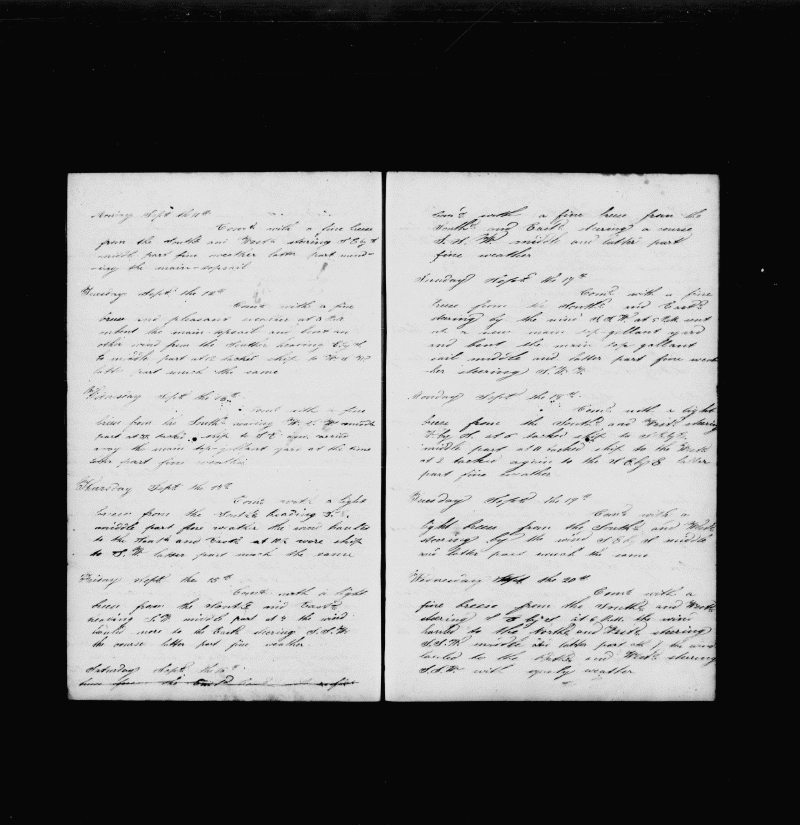 Monday Sept the 11th
Comd with a fine breeze
from the South and West steering S E by S
middle part fine weather latter part
way the main topsail
Tuesday Sept the 12th
Comd with a fine
breeze and pleasant weather at 3 P.M.
unbent the main topsail and bent an
other wind from the South heading
to middle part at 12 tacked ship to W S W
latter part much the same
Wednesday Sept the 13th
Comd with a fine
breeze from the South heading W. S. W middle
part at tacked ship to S E
way the main top-gallant yard at the same
latter part fine weather
Thursday Sept the 14th
Comd with a light
breeze from the South heading
middle part fine weather the wind hauled
to the South and East at wore ship
to S. W. latter part much the same
Friday Sept the 15th
Comd with a light
breeze from the South and East
heading S. W middle part at 4 the wind
hauled more to the East steering S.S.W
the course latter part fine weather
Saturday Sept the 16th
Comd with a fine breeze from the
South and East steering a course
S. S. W. middle and latter part
fine weather
Sunday Sept the 17th
Comd with a fine
breeze from the South and East
steering by the wind at 5 P.M. sent
up a new main top gallant yard
and bent the main top-gallant
sail middle and latter part fine weat
her steering S. W.
Monday Sept the 18th
Comd with a light
breeze from the South and West steering
by S. at 5 tacked ship to
middle part at tacked ship to the West
at tacked again to the S E by E latter
part fine weather
Tuesday Sept the 19th
Comd with a
light breeze from the South and West
steering by the wind middle
and latter part much the same
Wednesday Sept the 20th
Comd with a
fine breeze from the South and West
steering S E by S at 6 P.M. the wind
hauled to the North and West steering
S.S.W. middle and latter part the wind
hauled to the and West steering
S.S.W with squaly weather